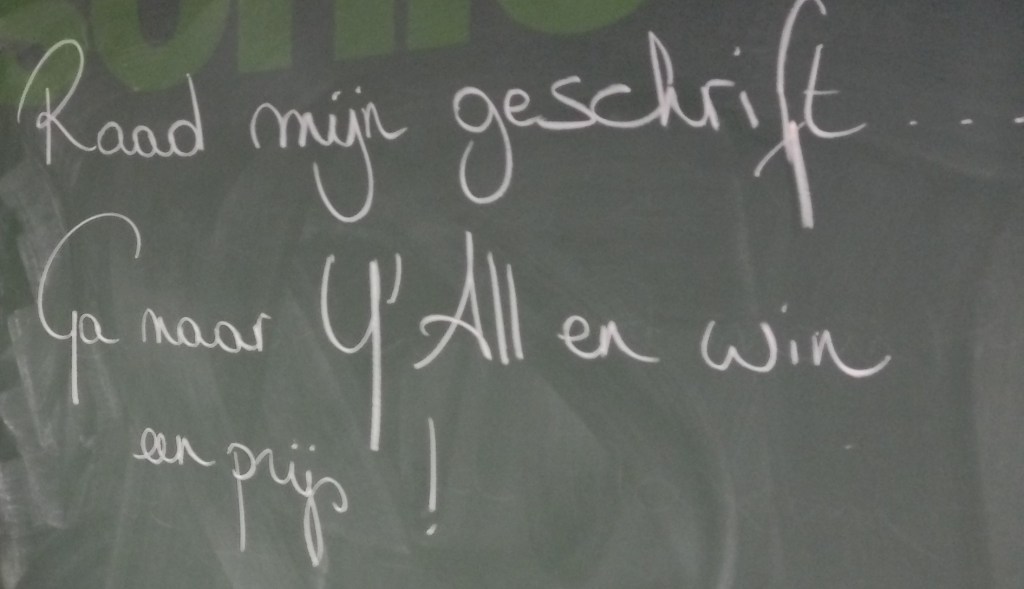 Raad mijn geschrift....
Ga naar Y'All en win
een prijs !